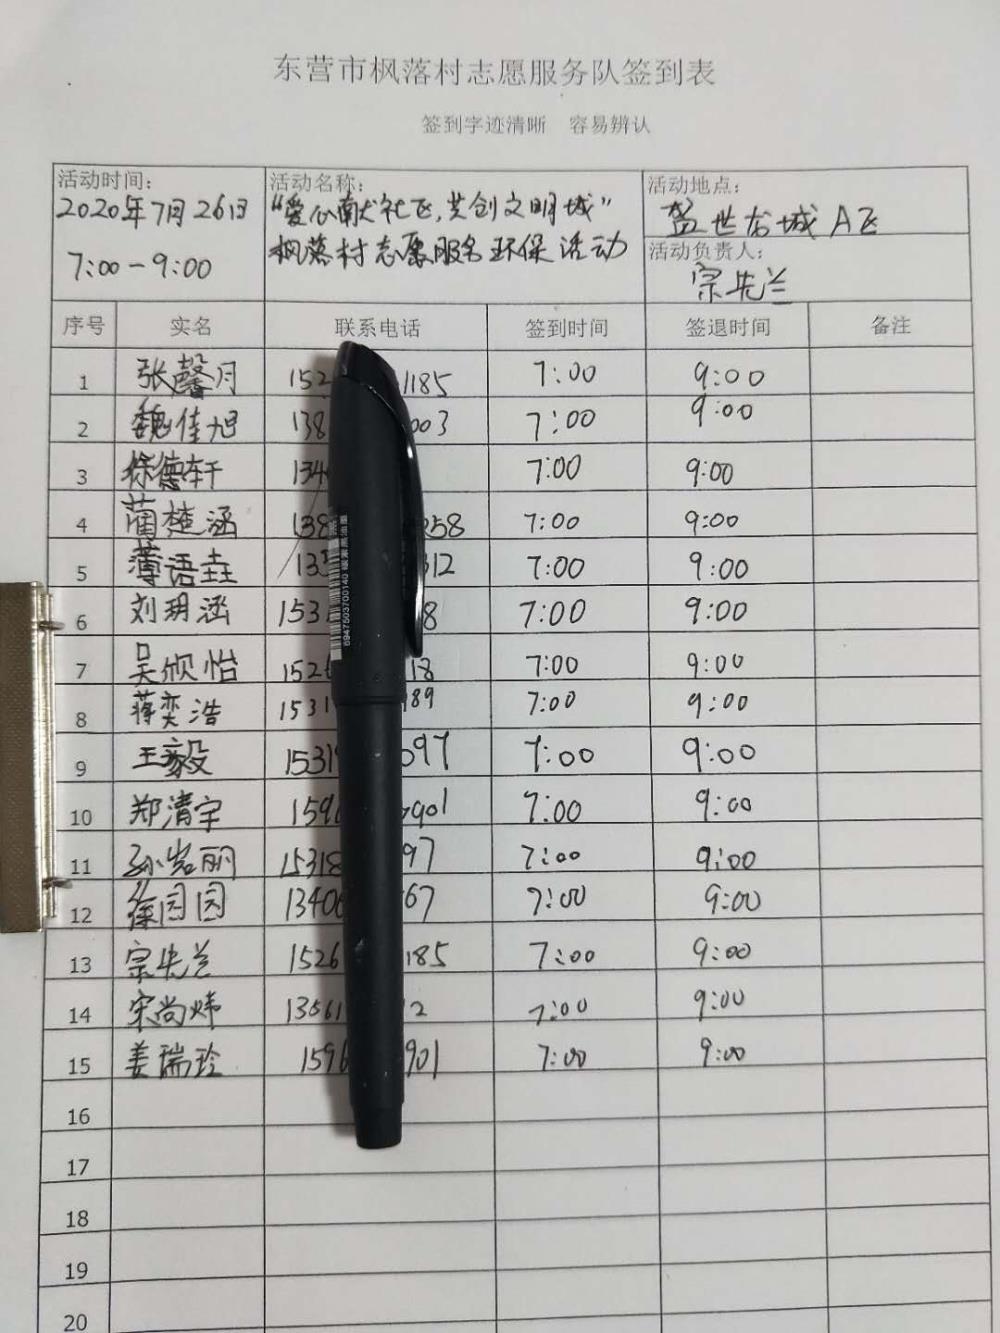 东营市枫落村志愿服务队签到表
签到字迹清晰 容易辨认
活动时间: 活动名称: 活动地点:
2020年7月26日 "爱心献社区,共创文明城" 盛世龙城A区
7:00-9:00 枫落村志愿服务环保活动 活动负责人:
宗先兰
序号 实名 联系电话 签到时间 签退时间 备注
1 张馨月 152 1185 7:00 9:00
2 魏佳旭 138 003 7:00 9:00
3 徐德轩 134 7:00 9:00
4 蔺楚涵 138 258 7:00 9:00
5 薄语垚 13 312 7:00 9:00
6 刘玥涵 153 8 7:00 9:00
7 吴欣怡 152 18 7:00 9:00
8 蒋奕浩 1531 189 7:00 9:00
9 王毅 1531 097 7:00 9:00
10 郑清宇 159 901 7:00 9:00
11 孙岩丽 15318 97 7:00 9:00
12 徐园园 13406 67 7:00 9:00
13 宗先兰 1526 185 7:00 9:00
14 宋尚炜 13561 2 7:00 9:00
15 姜瑞玲 159 901 7:00 9:00
16
17
18
19
20
6947503700140